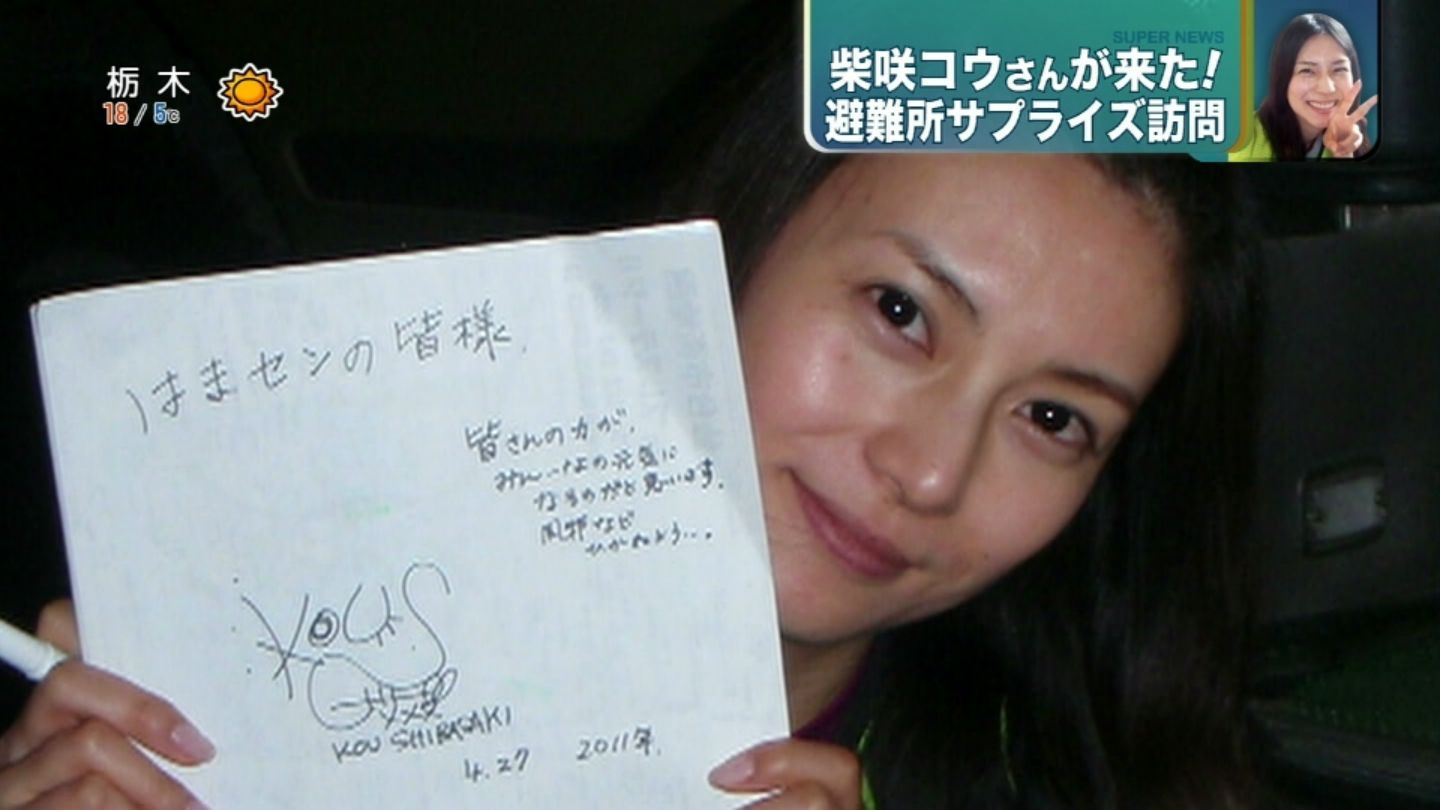 栃木
18/5℃
SUPER NEWS
柴咲コウさんが来た!
避難所サプライズ訪問
はまセンの皆様、
皆さんの力が、
みんなの元気に
なるのだと思います。
風邪など
ひかぬよう…。
KOU SHIBASAKI
4.27 2011年.